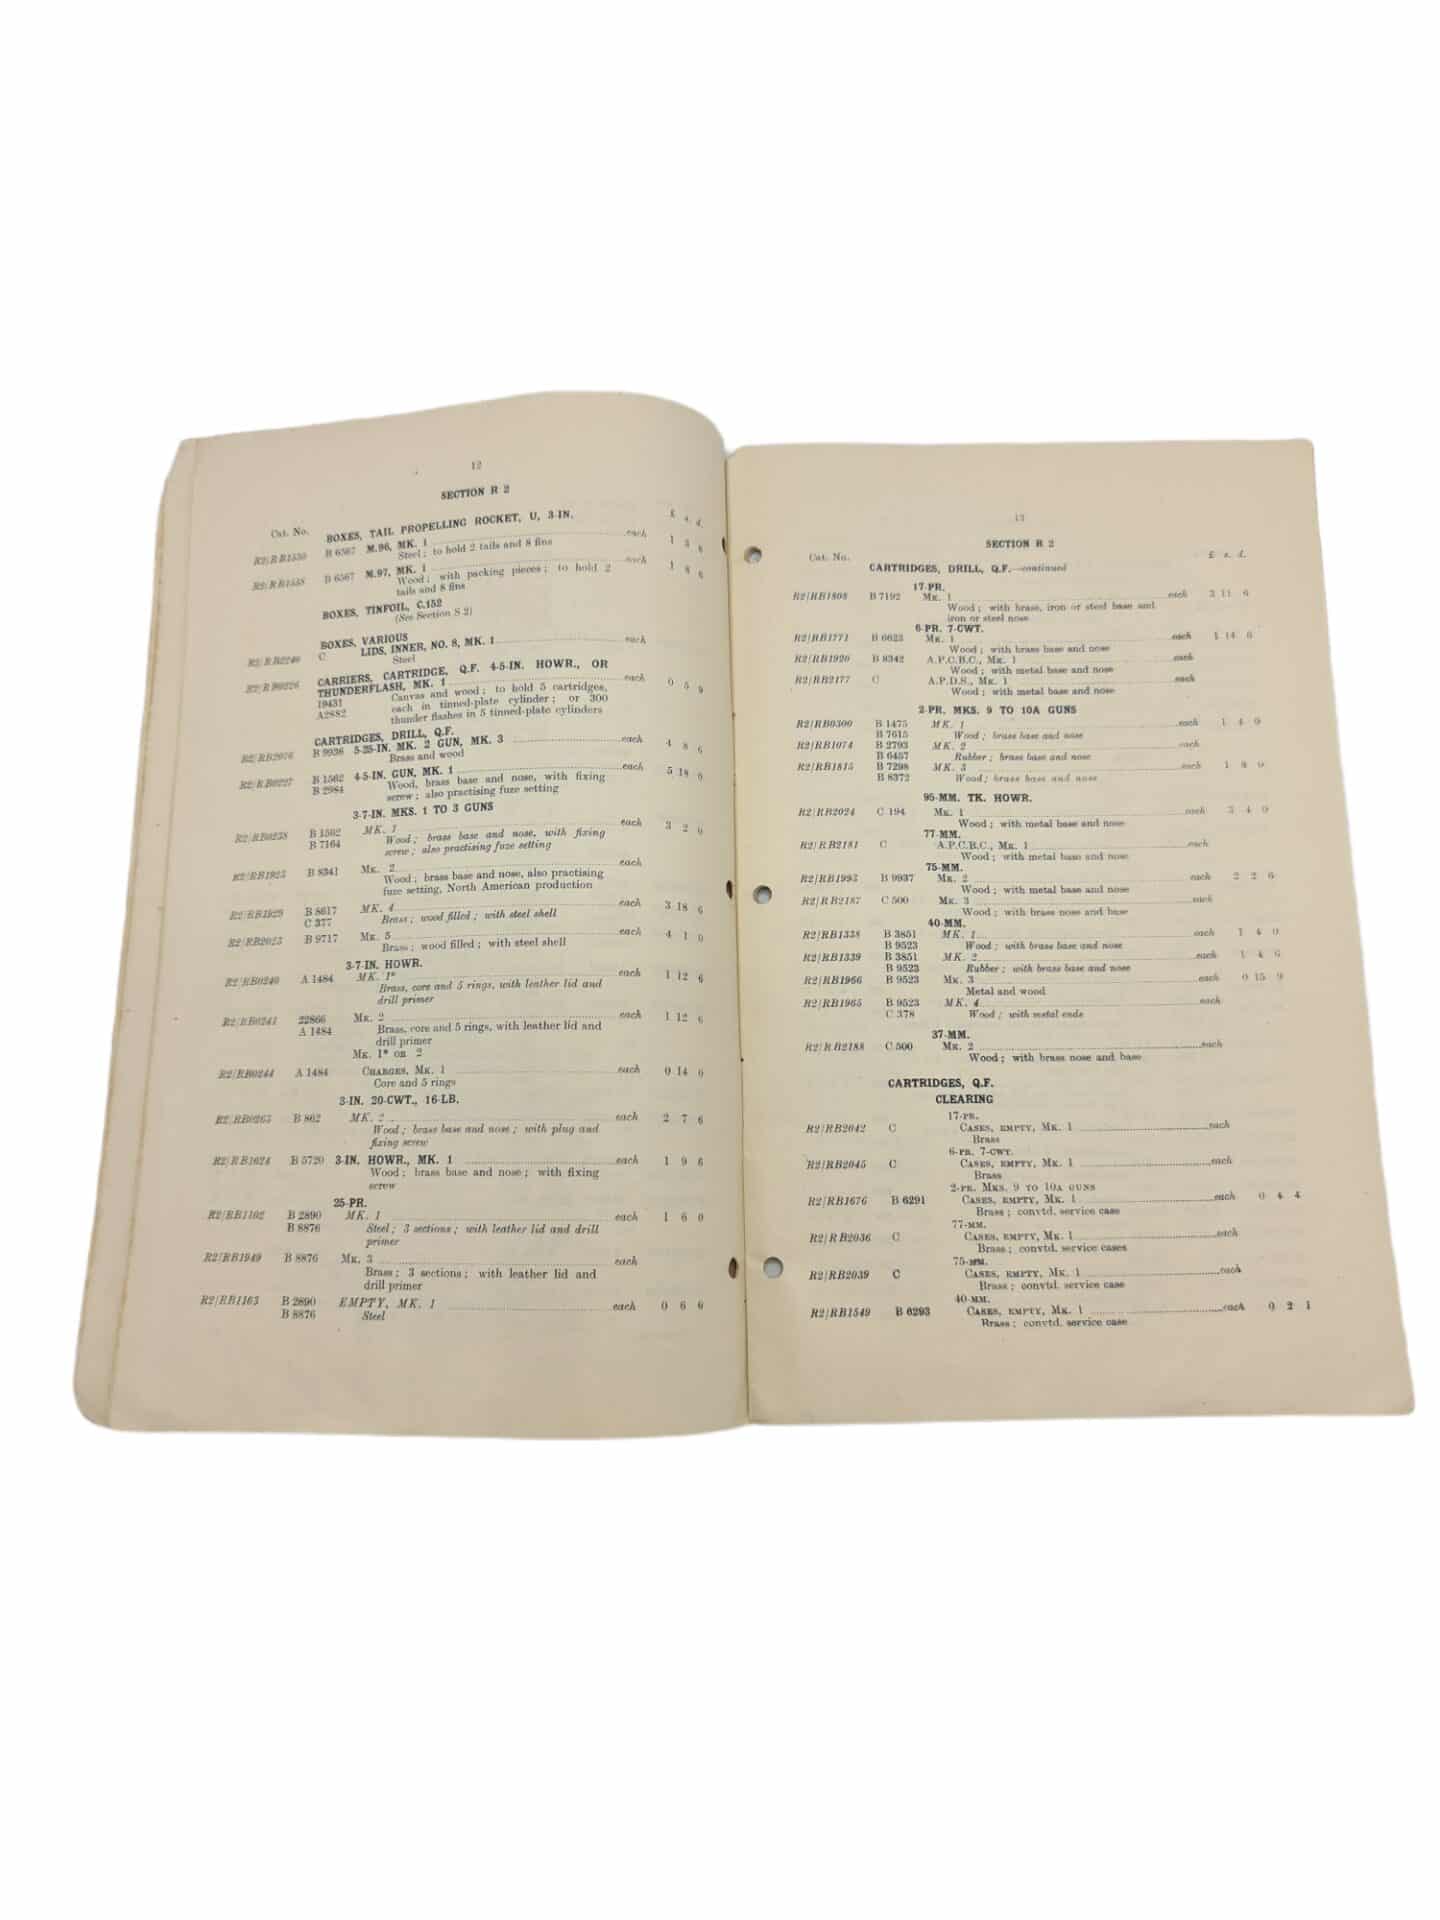 12
SECTION R 2
Cat. No. BOXES, TAIL PROPELLING ROCKET, U, 3-IN. £ s. d.
R2/RB1550 B 6567 M.96, MK. 1 each 1 5 6
Steel; to hold 2 tails and 8 fins
R2/RB1558 B 6567 M.97, MK. 1 each 1 8 6
Wood; with packing pieces; to hold 2
tails and 8 fins
BOXES, TINFOIL, C.152
(See Section S 2)
BOXES, VARIOUS
R2/RB2240 C LIDS, INNER, NO. 8, MK. 1 each
Steel
CARRIERS, CARTRIDGE, Q.F. 4·5-IN. HOWR., OR
R2/RB0226 THUNDERFLASH, MK. 1 each 0 5 9
19431 Canvas and wood; to hold 5 cartridges,
A2882 each in tinned-plate cylinder; or 300
thunder flashes in 5 tinned-plate cylinders
CARTRIDGES, DRILL, Q.F.
R2/RB2076 B 9936 5·25-IN. MK. 2 GUN, MK. 3 each 4 8 6
Brass and wood
R2/RB0227 B 1562 4·5-IN. GUN, MK. 1 each 5 18 0
B 2984 Wood, brass base and nose, with fixing
screw; also practising fuze setting
3·7-IN. MKS. 1 TO 3 GUNS
R2/RB0238 B 1562 MK. 1 each 3 2 0
B 7164 Wood; brass base and nose, with fixing
screw; also practising fuze setting
R2/RB1925 B 8341 MK. 2 each
Wood; brass base and nose, also practising
fuze setting, North American production
R2/RB1929 B 8617 MK. 4 each 3 18 6
C 377 Brass; wood filled; with steel shell
R2/RB2023 B 9717 MK. 5 each 4 1 0
Brass; wood filled; with steel shell
3·7-IN. HOWR.
R2/RB0240 A 1484 MK. 1* each 1 12 6
Brass, core and 5 rings, with leather lid and
drill primer
R2/RB0241 22866 MK. 2 each 1 12 6
A 1484 Brass, core and 5 rings, with leather lid and
drill primer
MK. 1* on 2
R2/RB0244 A 1484 CHARGES, MK. 1 each 0 14 0
Core and 5 rings
3-IN. 20-CWT., 16-LB.
R2/RB0265 B 862 MK. 2 each 2 7 6
Wood; brass base and nose; with plug and
fixing screw
R2/RB1624 B 5720 3-IN. HOWR., MK. 1 each 1 9 6
Wood; brass base and nose; with fixing
screw
25-PR.
R2/RB1102 B 2890 MK. 1 each 1 6 0
B 8876 Steel; 3 sections; with leather lid and drill
primer
R2/RB1949 B 8876 MK. 3 each
Brass; 3 sections; with leather lid and
drill primer
R2/RB1103 B 2890 EMPTY, MK. 1 each 0 6 0
B 8876 Steel
13
SECTION R 2
Cat. No. £ s. d.
CARTRIDGES, DRILL, Q.F.—continued
17-PR.
R2/RB1808 B 7192 MK. 1 each 3 11 6
Wood; with brass, iron or steel base and
iron or steel nose
6-PR. 7-CWT.
R2/RB1771 B 6623 MK. 1 each 1 14 6
Wood; with brass base and nose
R2/RB1920 B 8342 A.P.C.B.C., MK. 1 each
Wood; with metal base and nose
R2/RB2177 C A.P.D.S., MK. 1 each
Wood; with metal base and nose
2-PR. MKS. 9 TO 10A GUNS
R2/RB0300 B 1475 MK. 1 each 1 4 0
B 7615 Wood; brass base and nose
R2/RB1074 B 2793 MK. 2 each
B 6457 Rubber; brass base and nose
R2/RB1815 B 7298 MK. 3 each 1 8 0
B 8372 Wood; brass base and nose
95-MM. TK. HOWR.
R2/RB2024 C 194 MK. 1 each 3 4 0
Wood; with metal base and nose
77-MM.
R2/RB2181 C A.P.C.B.C., MK. 1 each
Wood; with metal base and nose
75-MM.
R2/RB1993 B 9937 MK. 2 each 2 2 6
Wood; with metal base and nose
R2/RB2187 C 500 MK. 3 each
Wood; with brass nose and base
40-MM.
R2/RB1338 B 3851 MK. 1 each 1 4 0
B 9523 Wood; with brass base and nose
R2/RB1339 B 3851 MK. 2 each 1 4 6
B 9523 Rubber; with brass base and nose
R2/RB1966 B 9523 MK. 3 each 0 15 9
Metal and wood
R2/RB1965 B 9523 MK. 4 each
C 378 Wood; with metal ends
37-MM.
R2/RB2188 C 500 MK. 2 each
Wood; with brass nose and base
CARTRIDGES, Q.F.
CLEARING
17-PR.
R2/RB2042 C CASES, EMPTY, MK. 1 each
Brass
6-PR. 7-CWT.
R2/RB2045 C CASES, EMPTY, MK. 1 each
Brass
2-PR. MKS. 9 TO 10A GUNS
R2/RB1676 B 6291 CASES, EMPTY, MK. 1 each 0 4 4
Brass; convtd. service case
77-MM.
R2/RB2036 C CASES, EMPTY, MK. 1 each
Brass; convtd. service cases
75-MM.
R2/RB2039 C CASES, EMPTY, MK. 1 each
Brass; convtd. service case
40-MM.
R2/RB1549 B 6293 CASES, EMPTY, MK. 1 each 0 2 1
Brass; convtd. service case